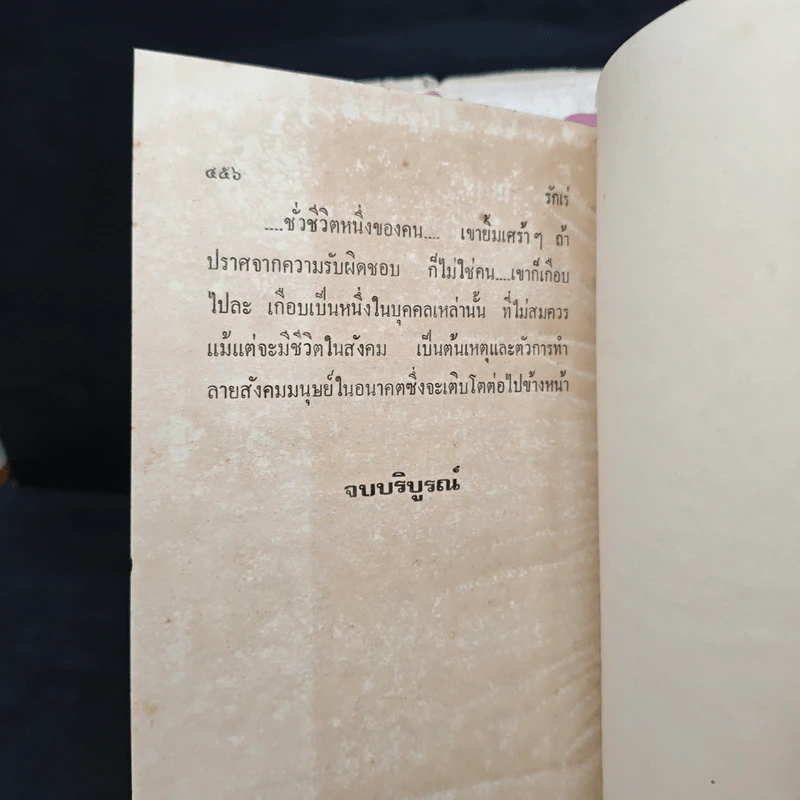 ๔๕๖
รักเร่
....ชั่วชีวิตหนึ่งของคน.... เขายิ้มเศร้า ๆ ถ้า
ปราศจากความรับผิดชอบ ก็ไม่ใช่คน....เขาก็เกือบ
ไปละ เกือบเป็นหนึ่งในบุคคลเหล่านั้น ที่ไม่สมควร
แม้แต่จะมีชีวิตในสังคม เป็นต้นเหตุและตัวการทำ
ลายสังคมมนุษย์ในอนาคตซึ่งจะเติบโตต่อไปข้างหน้า
จบบริบูรณ์